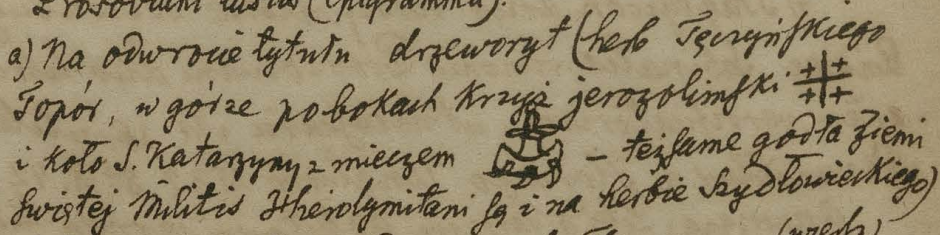 (epigramma).
a) Na odwrocie tytułu drzeworyt (herb Tęczyńskiego
Topór, w górze po bokach Krzyż jerozolimski
i koło S. Katarzyny z mieczem – też same godła Ziemi
Świętej Militis Hierolymitani są i na herbie Szydłowieckiego)